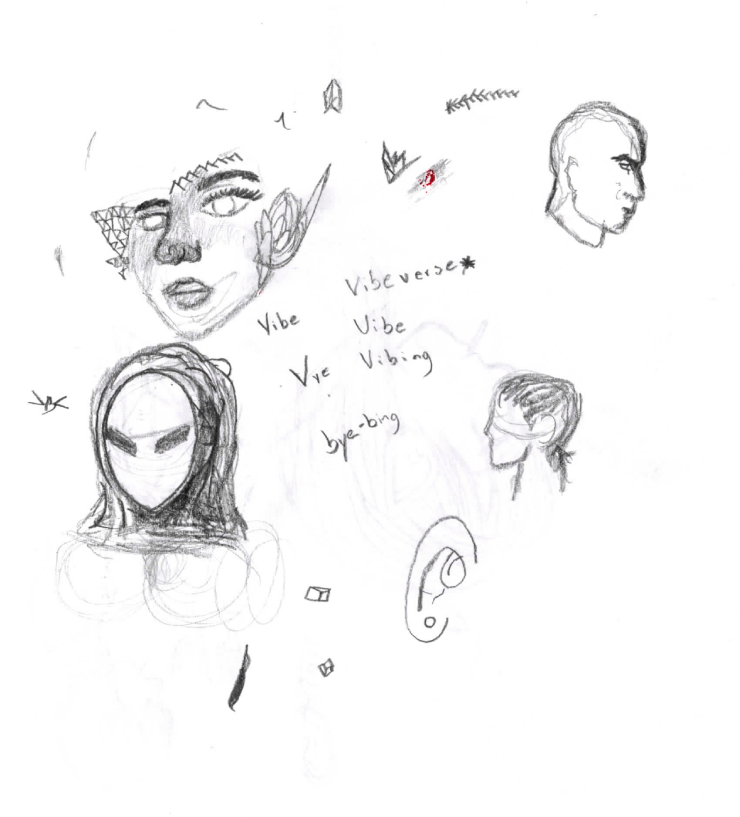 Vibeverse*
Vibe Vibe
Vye Vibing
bye-bing